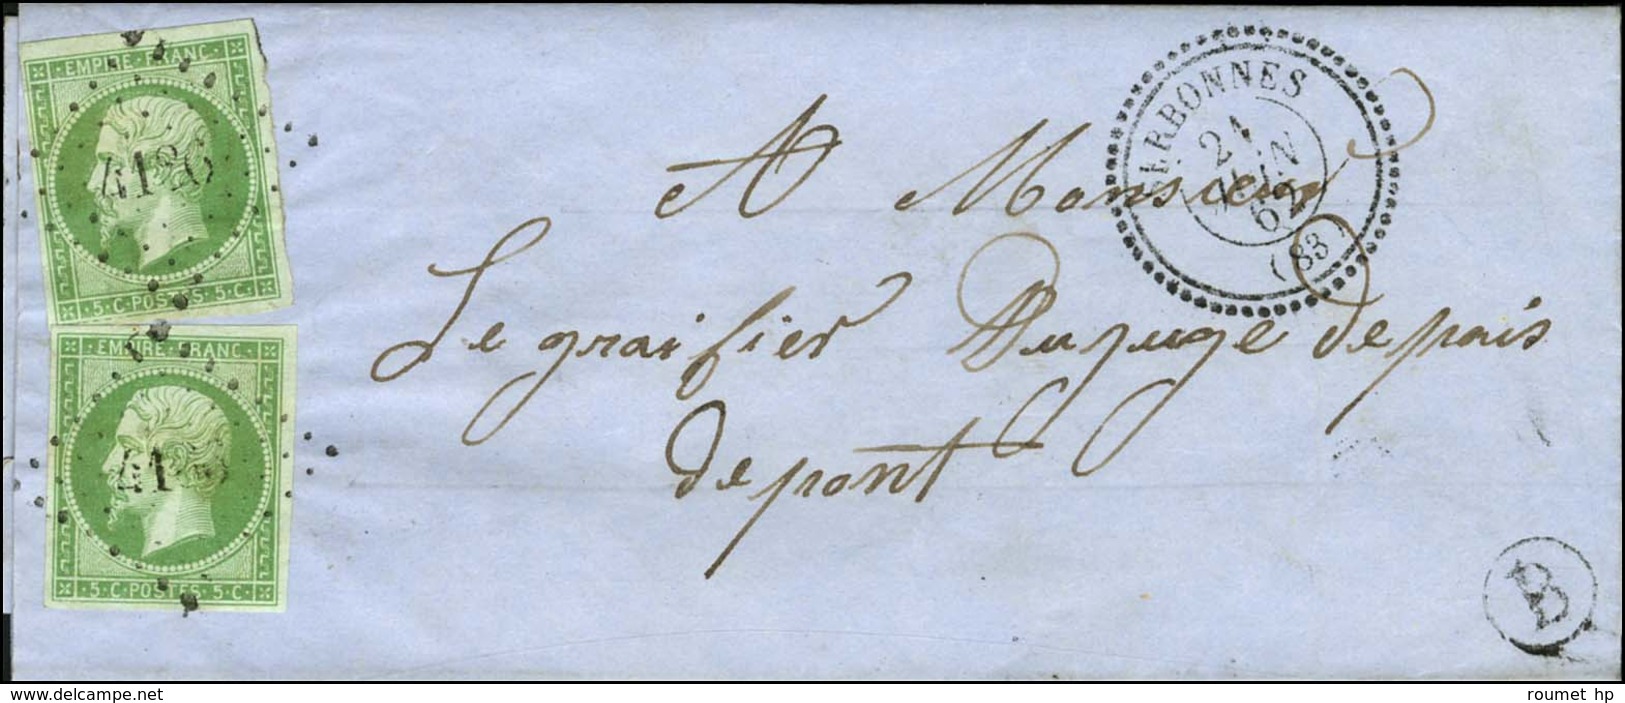 EMPIRE FRANC
4126
5 C POSTES 5 C
EMPIRE FRANC
41
5 C POSTES 5 C
ERBONNES
21
JUIN
62
(83)
A Monsieur
Le graifier Dujuge depais
depont
B
www.delcampe.net
roumet hp